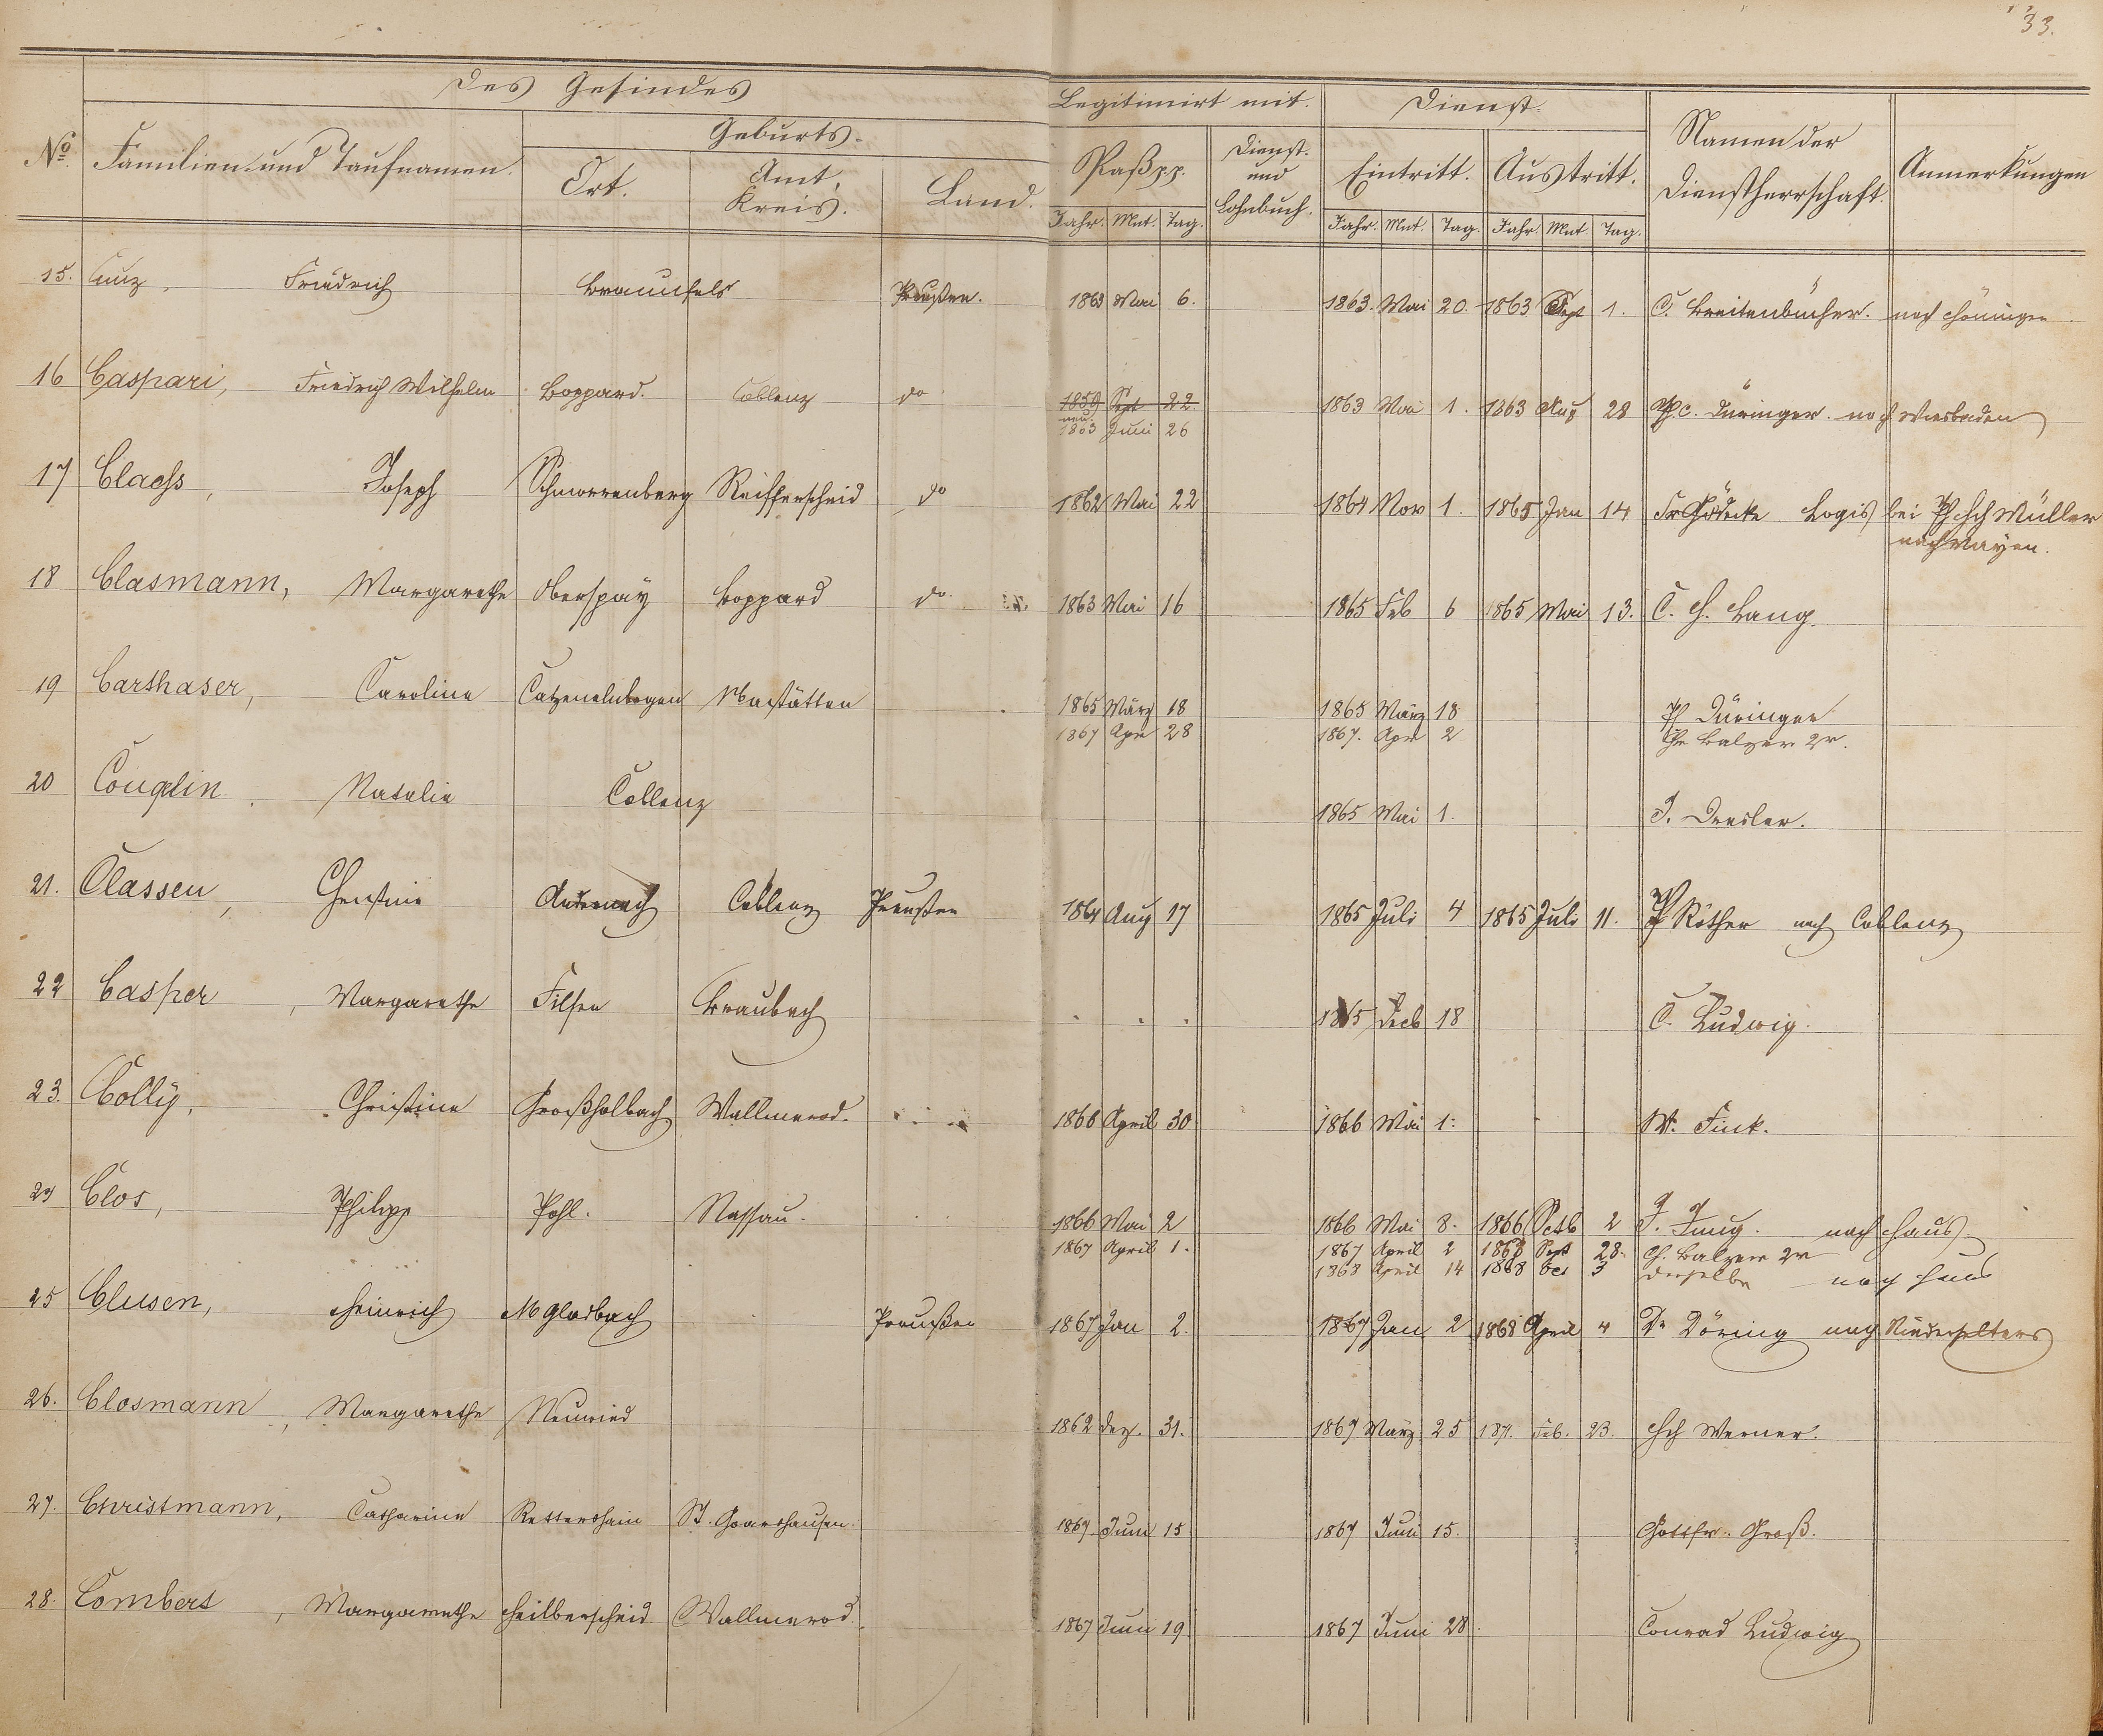 33.
Des Gesindes
Legitimirt mit. Dienst.
No. Familien- und Taufnamen. Geburts- Paß pp. Dienst- und Lohnbuch. Eintritt. Austritt. Namen der Dienstherrschaft. Anmerkungen
Ort. Amt, Kreis. Land.
Jahr. Mnt. Tag. Jahr. Mnt. Tag. Jahr. Mnt. Tag.
15. Cunz, Friedrich Braunfels Preußen. 1863 Mai 6. 1863. Mai 20. 1863 Sept 1. C. Breitenbücher. nach
16 Caspari, Friedrich Wilhelm Boppard. Coblenz do 1859 Sept 22. 1863 Mai 1. 1863 Aug 28 Ph. C. Düringer. nach Wiesbaden
neu. 1863 Juni 26
17 Claess, Joseph Schmorrenberg Reifferscheid do 1862 Mai 22 1864 Nov 1. 1865. Jan 14 Fr Gödecke Logis bei Ph Hch Müller
nach Mayen.
18 Clasmann, Margarethe Oberspay Boppard do. 1863 Mai 16 1865 Feb 6 1865 Mai 13. C. H. Lang.
19 Carthaser, Caroline Catzenelnbogen Nastätten 1865 März 18 1865 März 18 Ph Düringer
1867 Apr 28 1867. Apr 2 Balzer 2r.
20 Conglin, Natalie Coblenz 1865 Mai 1. J. Dresler.
21. Classen, Christine Andernach Coblenz Preußen 1864 Aug 17 1865 Juli 4 1865 Juli 11. Ph Röther nach Coblenz
22 Casper, Margarethe Filsen Braubach 1865 Decb 18 C. Ludwig.
23. Colly, Christine Großholbach Wallmerod. 1866 April 30 1866 Mai 1. W. Fink.
24 Clos, Philipp Pohl. Nassau. 1866 Mai 2 1866 Mai 8. 1866 Octb 2 F. Jung. nach Haus
1867 April 1. 1867 April 2 1867 Sept 28. Balzer 2r
1868 April 14 1868 Oct 3 derselbe nach Haus
25 Clusen, Heinrich M Gladbach Preußen 1867 Jan 2. 1867 Jan 2 1868 April 4 Dr Döring nach Niederselters
26. Closmann, Margarethe Neuwied 1862 Dez. 31. 1867 März 25 187. Feb. 23. Hch Werner.
27. Christmann, Catharine Rettershain St. Goarshausen. 1867. Juni 15 1867 Juni 15. Gottfr. Groß.
28. Combert, Margarethe Heilberscheid Wallmerod. 1867 Juni 19 1867 Juni 28. Conrad Ludwig